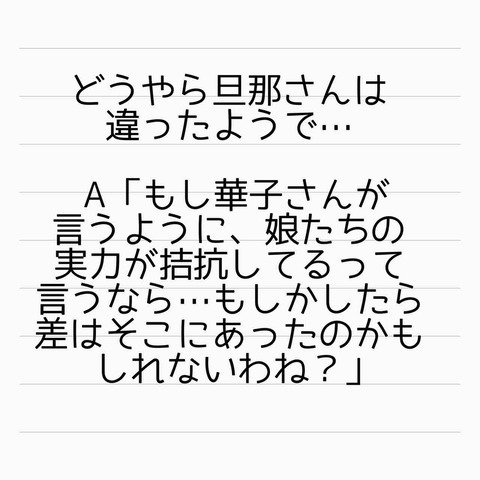 どうやら旦那さんは
違ったようで…
A「もし華子さんが
言うように、娘たちの
実力が拮抗してるって
言うなら…もしかしたら
差はそこにあったのかも
しれないわね？」